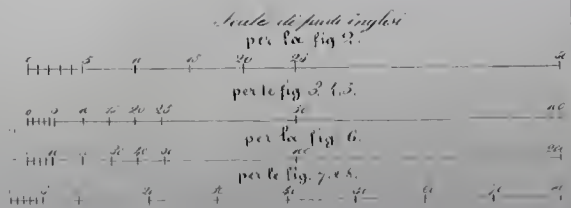 Scale di piedi inglesi
per la fig 2.
0 5 10 15 20 25 50
per le fig 3. 4. 5.
0 5 10 15 20 25 50 100
per la fig 6.
10 30 40 50 100 200
per le fig. 7. e 8.